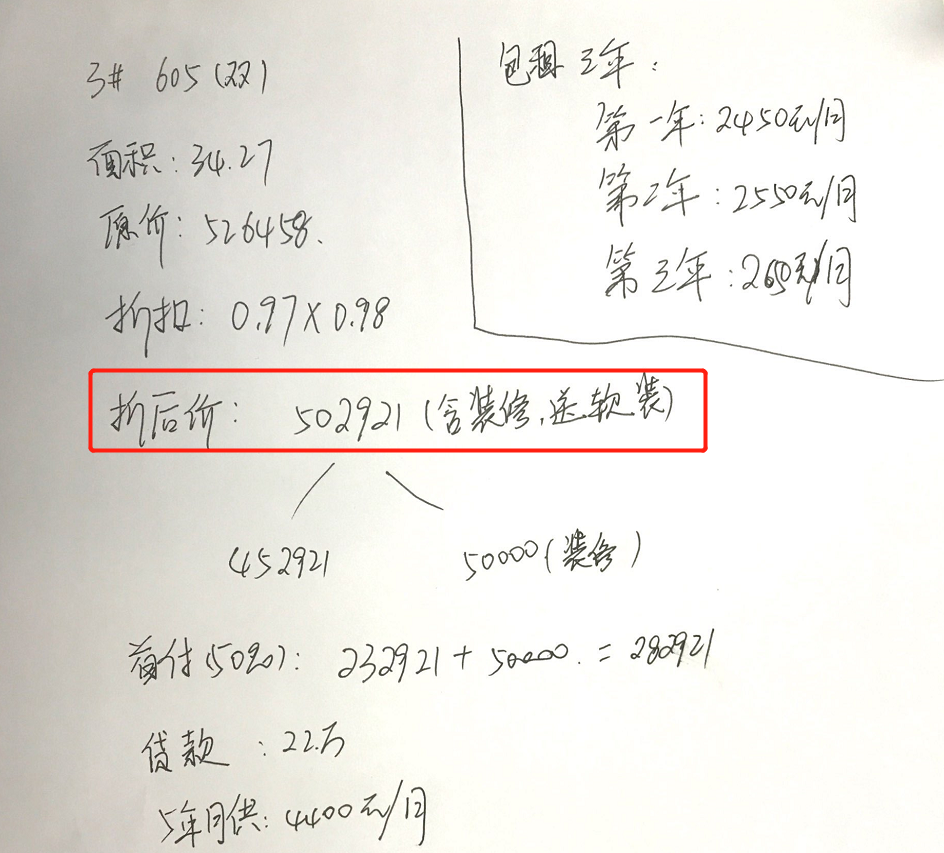 3# 605(双)
面积:34.27
原价:526458.
折扣:0.97×0.98
折后价:502921(含装修,送软装)
452921
50000(装修)
首付(50%):232921+50000.=282921
贷款:22万
5年月供:4400元/月
包租三年:
第一年:2450元/月
第二年:2550元/月
第三年:2650元/月